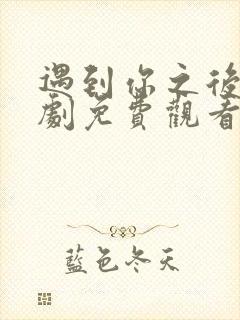 遇到你之後
劇免費觀看
藍色冬天